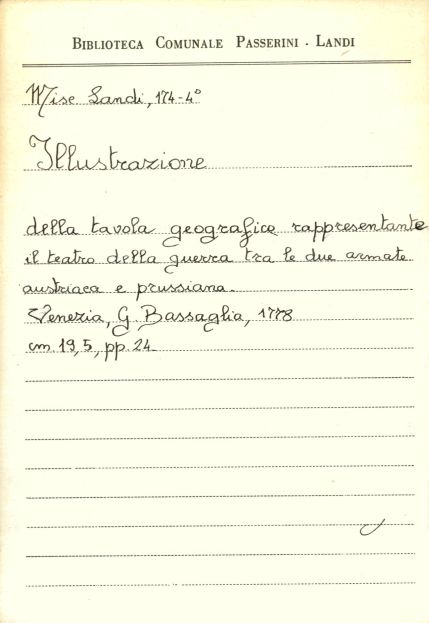 BIBLIOTECA COMUNALE PASSERINI - LANDI
Misc Landi, 174-4°
Illustrazione
della tavola geografica rappresentante
il teatro della guerra tra le due armate
austriaca e prussiana.
Venezia, G. Bassaglia, 1778
cm. 19,5, pp. 24.